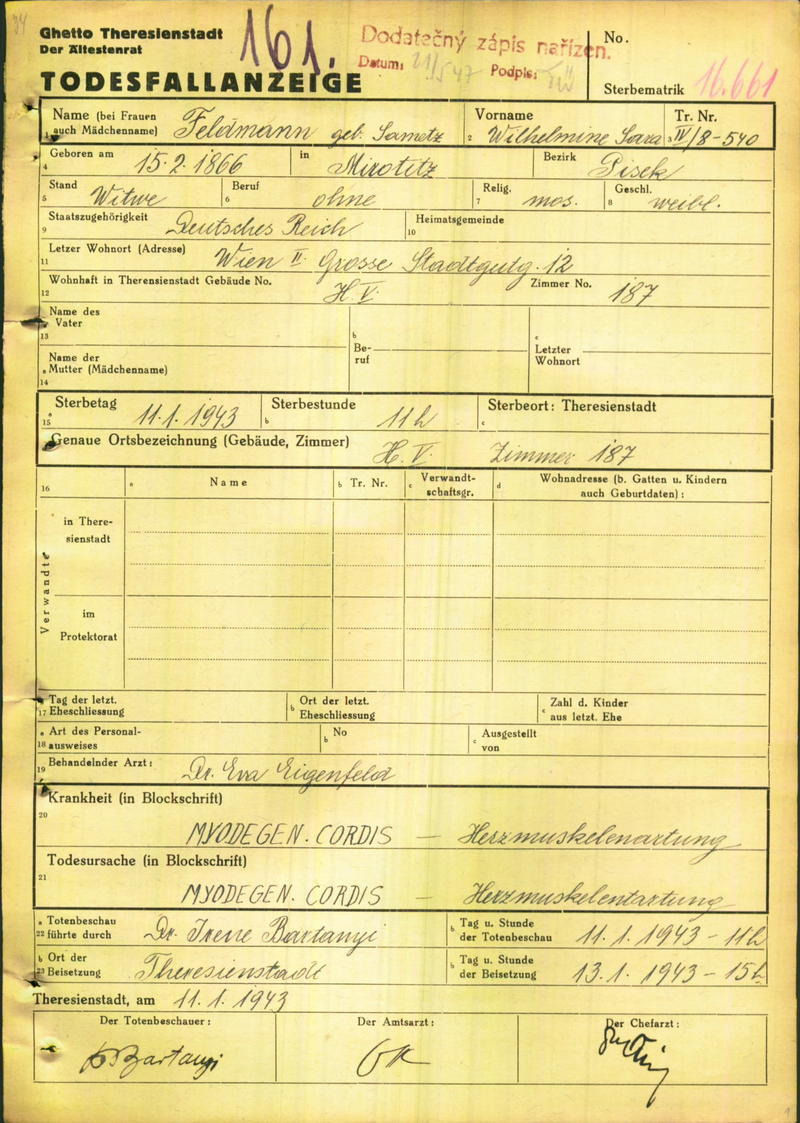 34
Ghetto Theresienstadt
Der Ältestenrat
161.
Dodatečný zápis nařízen.
Datum: 21/5 47 Podpis:
No.
TODESFALLANZEIGE
Sterbematrik 16.661
Name (bei Frauen auch Mädchenname) Feldmann geb. Sametz
Vorname Wilhelmine Sara
Tr. Nr. IV/8-540
Geboren am 15. 2. 1866 in Mirotitz Bezirk Pisek
Stand Witwe Beruf ohne Relig. mos. Geschl. weibl.
Staatszugehörigkeit Deutsches Reich Heimatsgemeinde
Letzer Wohnort (Adresse) Wien II. Grosse Stadtgutg. 12
Wohnhaft in Theresienstadt Gebäude No. H. V. Zimmer No. 187
Name des Vater
Be-ruf
Letzter Wohnort
Name der Mutter (Mädchenname)
Sterbetag 11. 1. 1943 Sterbestunde 11 h Sterbeort: Theresienstadt
Genaue Ortsbezeichnung (Gebäude, Zimmer) H. V. Zimmer 187
Name Tr. Nr. Verwandt-schaftsgr. Wohnadresse (b. Gatten u. Kindern auch Geburtdaten):
Verwandte
in There-sienstadt
im Protektorat
Tag der letzt. Eheschliessung Ort der letzt. Eheschliessung Zahl d. Kinder aus letzt. Ehe
Art des Personal-ausweises No Ausgestellt von
Behandelnder Arzt: Dr. Eva Eigenfeld
Krankheit (in Blockschrift)
MYODEGEN. CORDIS — Herzmuskelenartung
Todesursache (in Blockschrift)
MYODEGEN. CORDIS — Herzmuskelentartung
Totenbeschau führte durch Dr. Irene Bartanyi Tag u. Stunde der Totenbeschau 11. 1. 1943 - 11h
Ort der Beisetzung Theresienstadt Tag u. Stunde der Beisetzung 13. 1. 1943 - 15h
Theresienstadt, am 11. 1. 1943
Der Totenbeschauer: Der Amtsarzt: Der Chefarzt:
Bartanyi